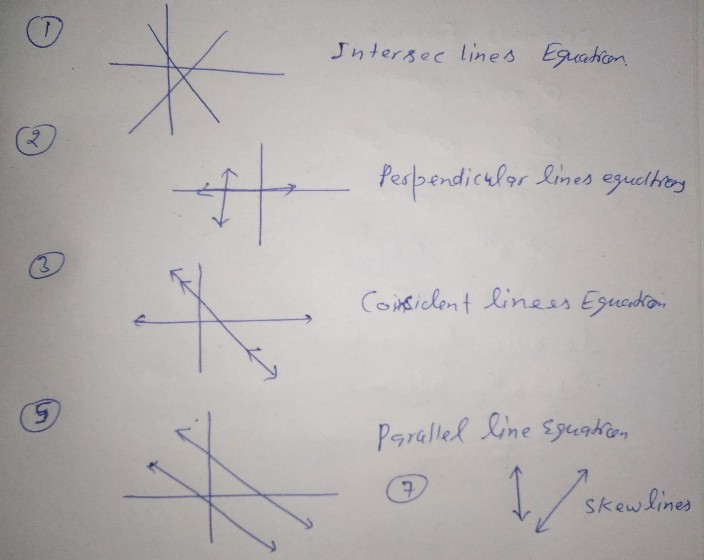 1
Intersec lines Equation.
2
Perpendicular lines equations
3
Coinsident linees Equation
5
Parallel line Equation
7
Skew lines